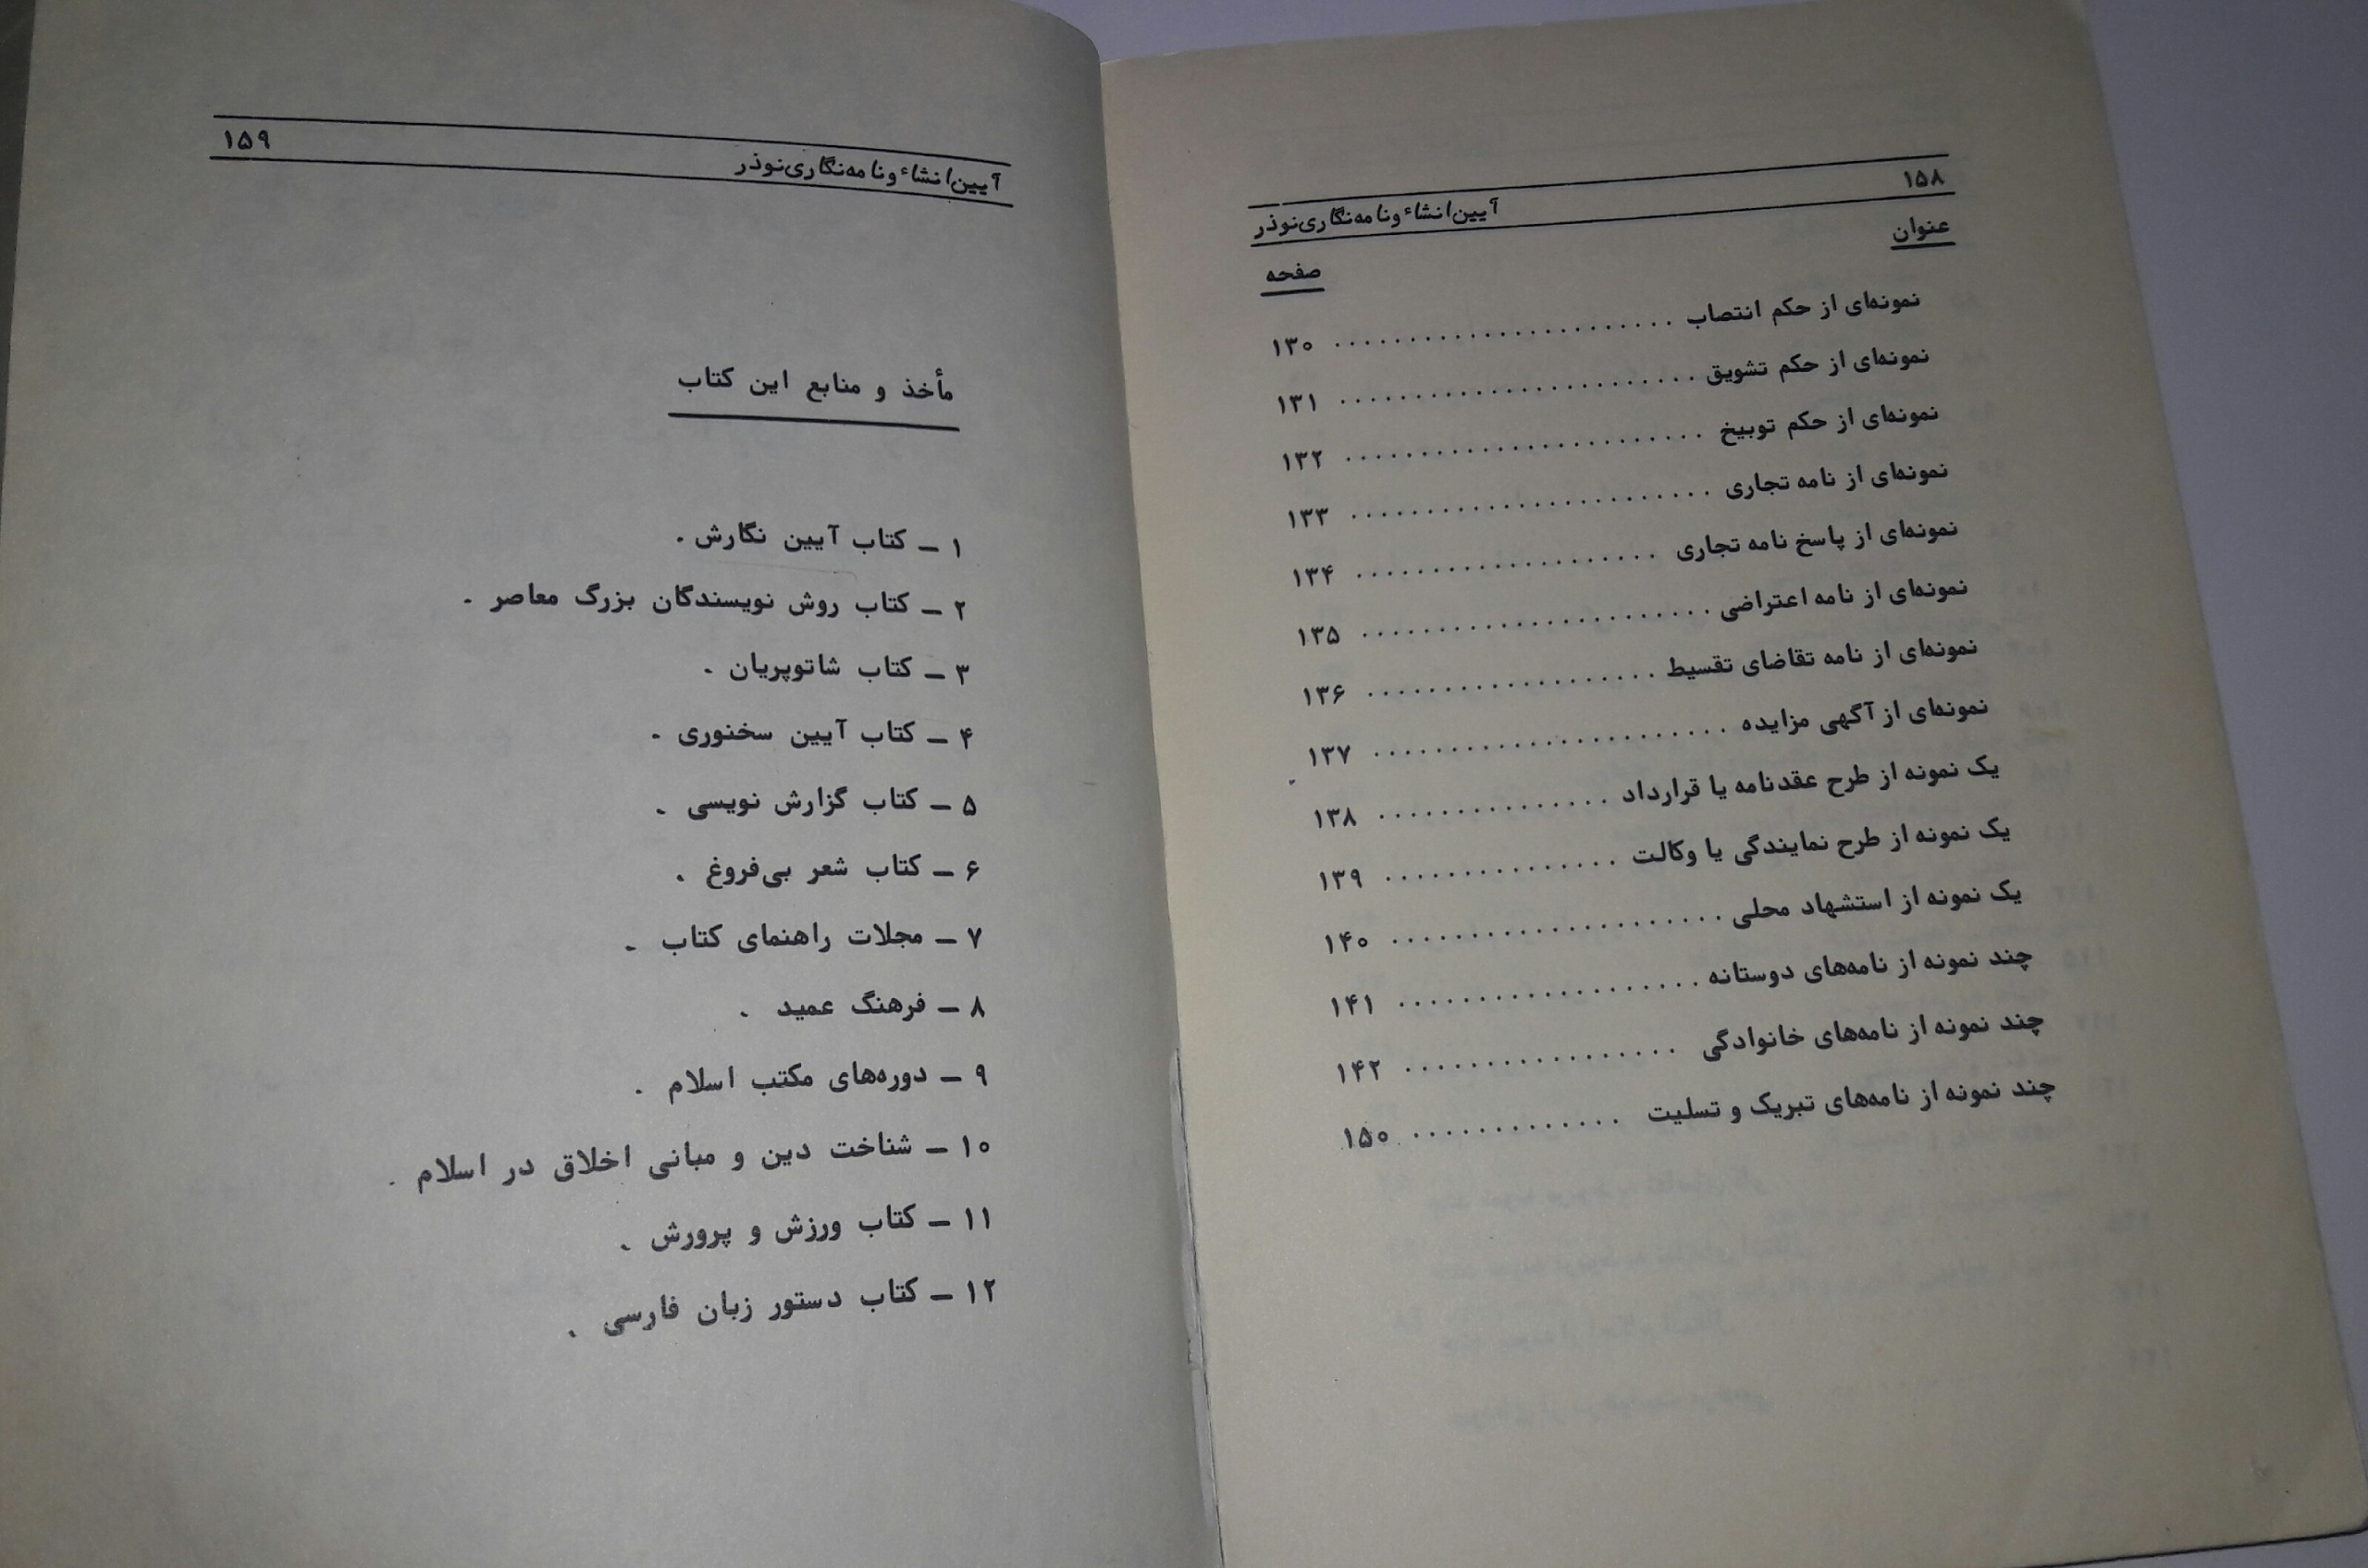 ۱۵۸
آیین انشاء و نامه‌نگاری نوذر
عنوان
صفحه
نمونه‌ای از حکم انتصاب ...................... ۱۳۰
نمونه‌ای از حکم تشویق ....................... ۱۳۱
نمونه‌ای از حکم توبیخ ....................... ۱۳۲
نمونه‌ای از نامه تجاری ....................... ۱۳۳
نمونه‌ای از پاسخ نامه تجاری ................... ۱۳۴
نمونه‌ای از نامه اعتراضی ...................... ۱۳۵
نمونه‌ای از نامه تقاضای تقسیط .................. ۱۳۶
نمونه‌ای از آگهی مزایده ....................... ۱۳۷
یک نمونه از طرح عقدنامه یا قرارداد ............... ۱۳۸
یک نمونه از طرح نمایندگی یا وکالت ............... ۱۳۹
یک نمونه از استشهاد محلی ..................... ۱۴۰
چند نمونه از نامه‌های دوستانه ................... ۱۴۱
چند نمونه از نامه‌های خانوادگی ................. ۱۴۲
چند نمونه از نامه‌های تبریک و تسلیت ............. ۱۵۰
آیین انشاء و نامه‌نگاری نوذر
۱۵۹
مأخذ و منابع این کتاب
۱ – کتاب آیین نگارش .
۲ – کتاب روش نویسندگان بزرگ معاصر .
۳ – کتاب شاتوپریان .
۴ – کتاب آیین سخنوری .
۵ – کتاب گزارش نویسی .
۶ – کتاب شعر بی‌فروغ .
۷ – مجلات راهنمای کتاب .
۸ – فرهنگ عمید .
۹ – دوره‌های مکتب اسلام .
۱۰ – شناخت دین و مبانی اخلاق در اسلام .
۱۱ – کتاب ورزش و پرورش .
۱۲ – کتاب دستور زبان فارسی .